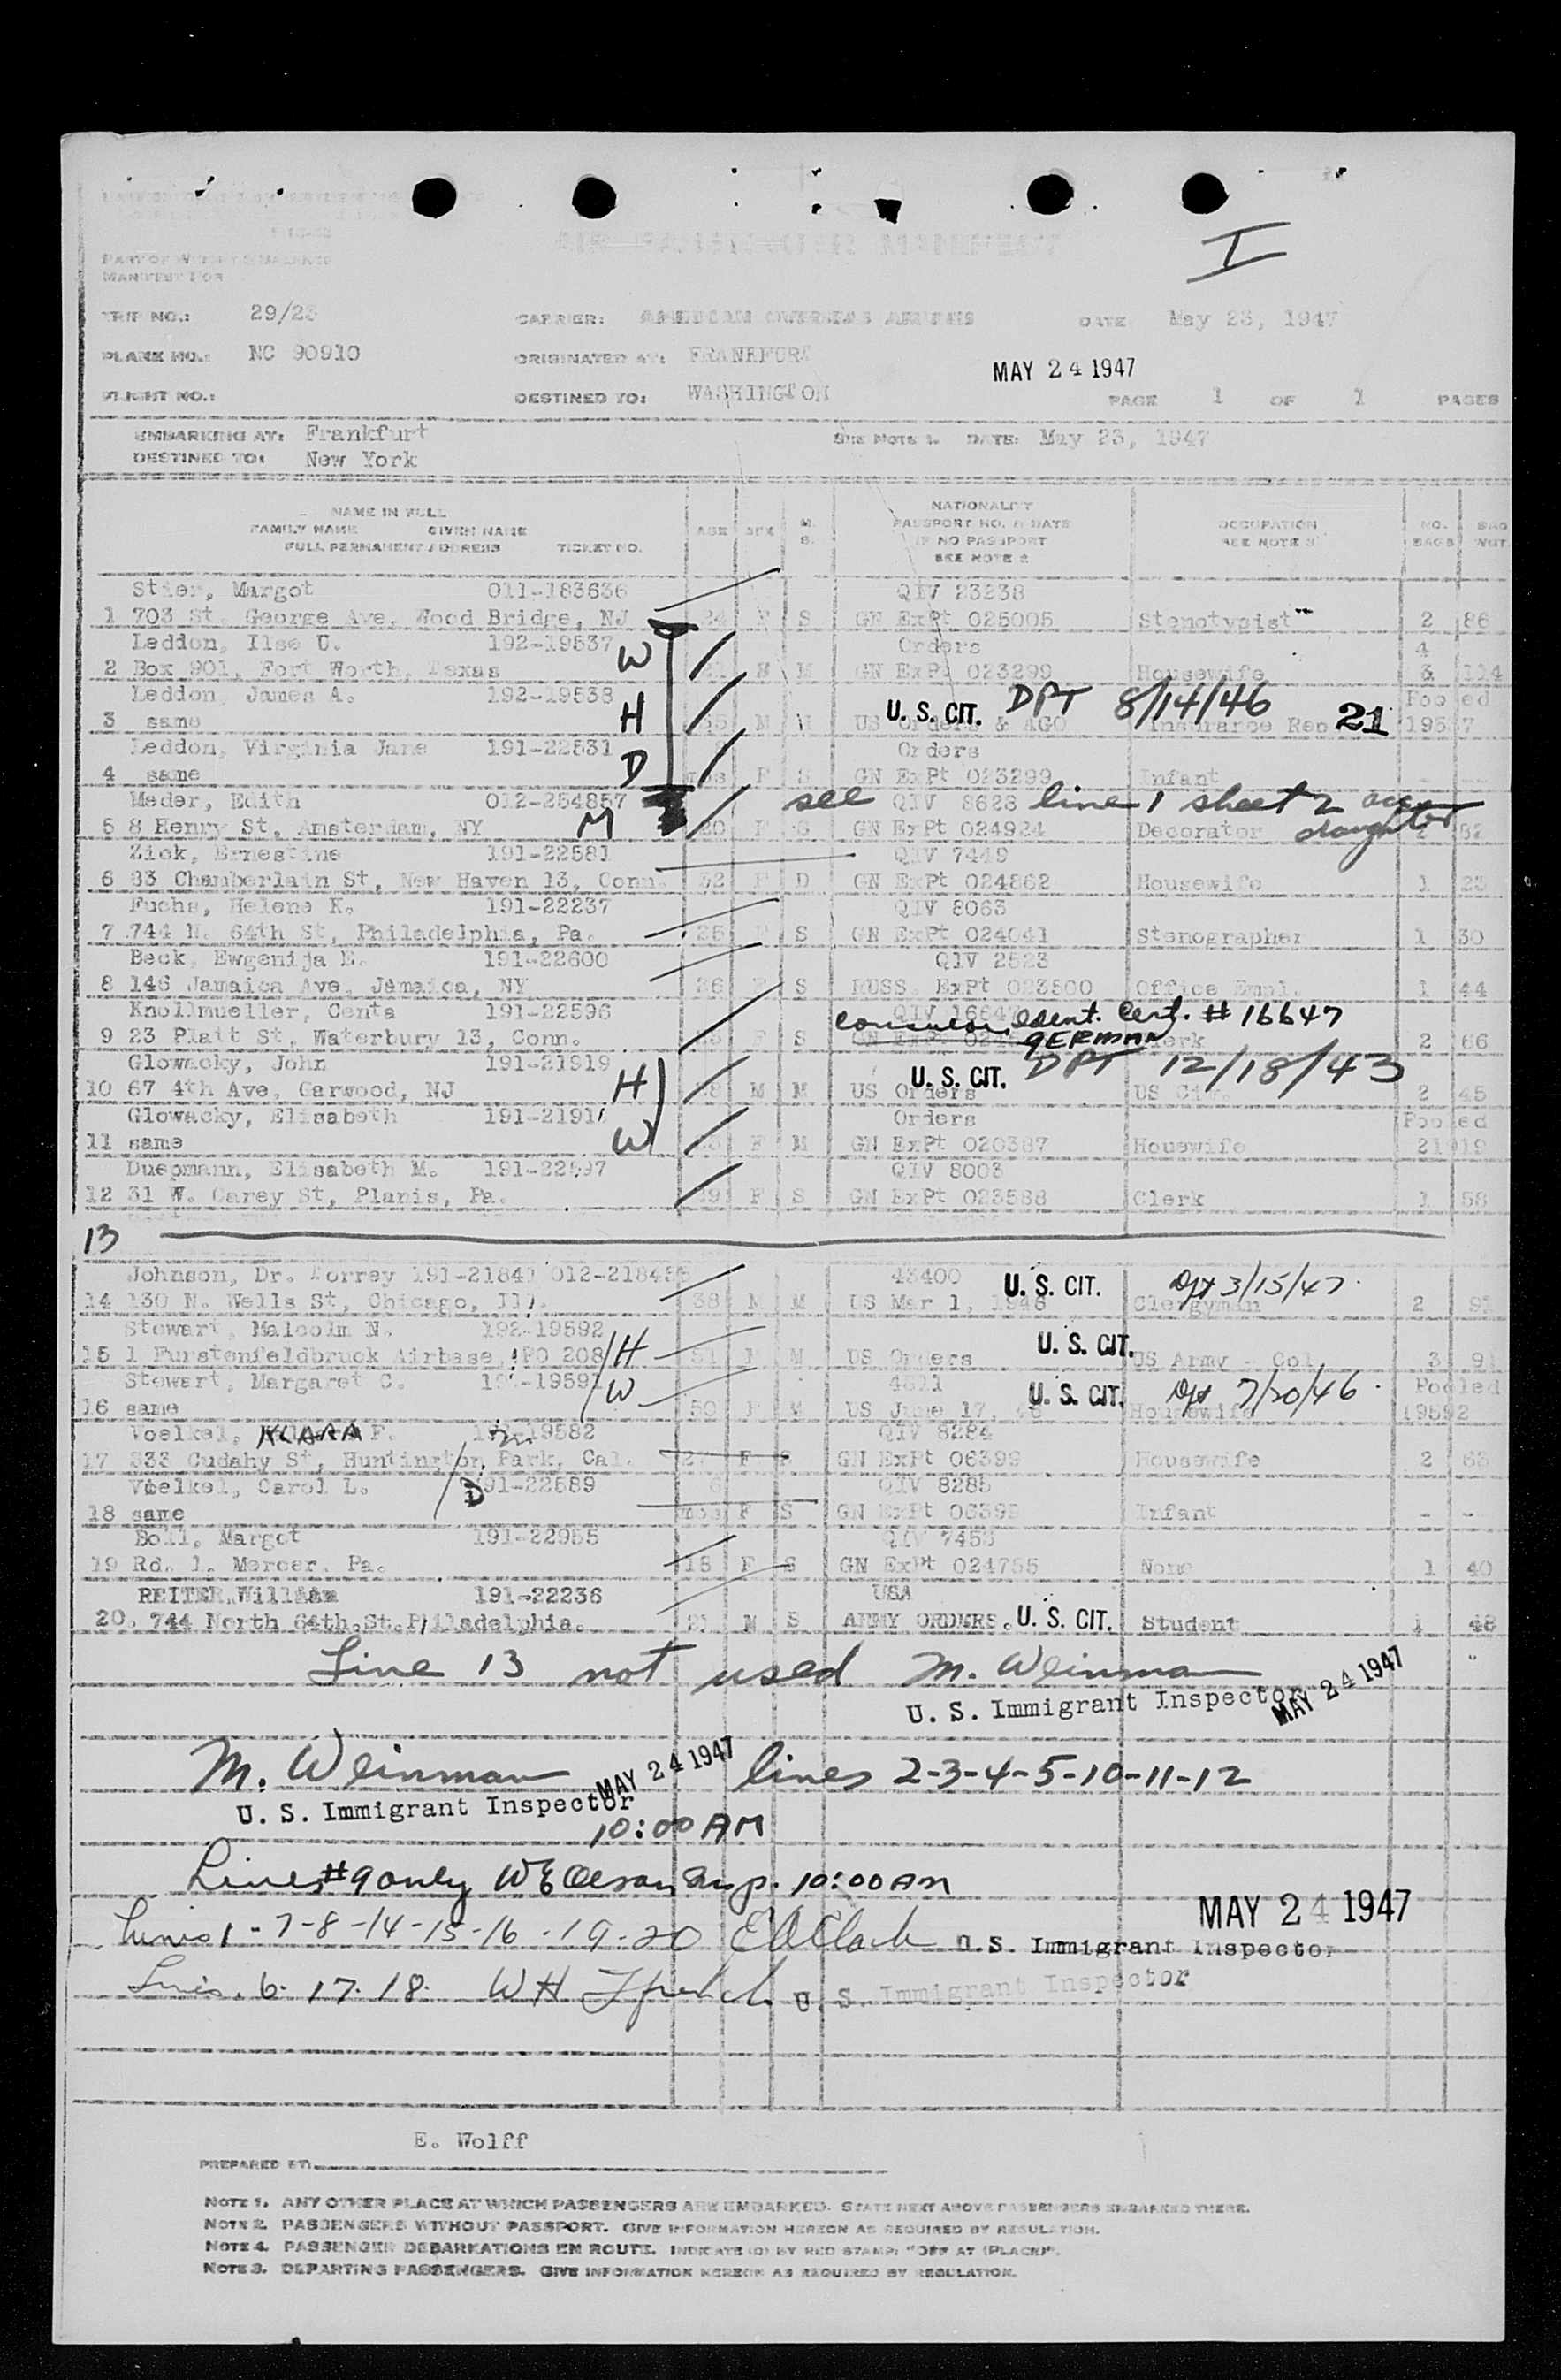 I
AIR PASSENGER MANIFEST
PART OF WEIGHT & BALANCE
MANIFEST FOR
TRIP NO.: 29/23 CARRIER: AMERICAN OVERSEAS AIRLINES DATE May 23, 1947
PLANE NO.: NC 90910 ORIGINATED AT: FRANKFURT
MAY 24 1947
FLIGHT NO.: DESTINED TO: WASHINGTON PAGE 1 OF 1 PAGES
EMBARKING AT: Frankfurt SEE NOTE 1. DATE: May 23, 1947
DESTINED TO: New York
NAME IN FULL
FAMILY NAME GIVEN NAME
FULL PERMANENT ADDRESS TICKET NO.
AGE SEX M. S.
NATIONALITY
PASSPORT NO. & DATE
IF NO PASSPORT
SEE NOTE 2
OCCUPATION
SEE NOTE 3
NO. BAGS
BAG WGT.
Stier, Margot 011-183636 QIV 23238
1 703 St. George Ave. Wood Bridge, NJ 24 F S GN ExPt 025005 Stenotypist 2 86
Leddon, Ilse U. 192-19537 W Orders 4
2 Box 901, Fort Worth, Texas 21 F M GN ExPt 023299 Housewife 3 114
Leddon, James A. 192-19538 H U. S. CIT. DPT 8/14/46 Pooled
3 same 35 M M US Orders & AGO Insurance Rep 21 19537
Leddon, Virginia Jane 191-22531 D Orders
4 same mos F S GN ExPt 023299 Infant - -
Meder, Edith 012-254857 M see QIV 8628 line 1 sheet 2 acc daughter
5 8 Henry St, Amsterdam, NY 20 F S GN ExPt 024924 Decorator 2 82
Zick, Ernestine 191-22581 QIV 7449
6 83 Chamberlain St, New Haven 13, Conn. 32 F D GN ExPt 024862 Housewife 1 23
Fuchs, Helene K. 191-22237 QIV 8063
7 744 N. 64th St, Philadelphia, Pa. 25 F S GN ExPt 024041 Stenographer 1 30
Beck, Ewgenija E. 191-22600 QIV 2523
8 146 Jamaica Ave, Jamaica, NY 26 F S RUSS. ExPt 023500 Office Empl. 1 44
Knollmueller, Centa 191-22596 QIV 16647 Consular Ident. Cert. # 16647
9 23 Platt St, Waterbury 13, Conn. F S GN ExPt GERMAN Clerk 2 66
Glowacky, John 191-21919 H U. S. CIT. DPT 12/18/43
10 67 4th Ave, Garwood, NJ 28 M M US Orders US Civ. 2 45
Glowacky, Elisabeth 191-21918 W Orders Pooled
11 same F M GN ExPt 020387 Housewife 21919
Duepmann, Elisabeth M. 191-22597 QIV 8003
12 31 W. Carey St, Planis, Pa. 29 F S GN ExPt 023588 Clerk 1 58
13
Johnson, Dr. Torrey 191-21841 012-218485 43400 U. S. CIT. Dpt 3/15/47
14 130 N. Wells St, Chicago, Ill. 38 M M US Mar 1, 1946 Clergyman 2 91
Stewart, Malcolm N. 192-19592 H U. S. CIT.
15 1 Furstenfeldbruck Airbase, APO 208 51 M M US Orders US Army - Col. 3 91
Stewart, Margaret C. 192-19591 W 4811 U. S. CIT. Dpt 7/20/46 Pooled
16 same 50 F M US June 17, 46 Housewife 19592
Voelkel, KLARA F. 192-19582 QIV 8284
17 333 Cudahy St, Huntington Park, Cal. F S GN ExPt 06399 Housewife 2 63
Voelkel, Carol L. D 191-22589 6 QIV 8285
18 same mos F S GN ExPt 06399 Infant - -
Boll, Margot 191-22955 QIV 7455
19 Rd. 1, Mercer, Pa. 18 F S GN ExPt 024755 None 1 40
REITER William 191-22236 USA
20. 744 North 64th.St.Philadelphia. 21 M S ARMY ORDERS. U. S. CIT. Student 1 48
Line 13 not used M. Weinman
U. S. Immigrant Inspector MAY 24 1947
M. Weinman MAY 24 1947 lines 2-3-4-5-10-11-12
U. S. Immigrant Inspector
10:00 AM
Lines #9 only W E Olson Insp. 10:00 AM
MAY 24 1947
Lines 1-7-8-14-15-16-19-20 E A Clark U.S. Immigrant Inspector
Lines 6. 17. 18. W H U. S. Immigrant Inspector
E. Wolff
PREPARED BY:
NOTE 1. ANY OTHER PLACE AT WHICH PASSENGERS ARE EMBARKED. STATE NEXT ABOVE PASSENGERS EMBARKED THERE.
NOTE 2. PASSENGERS WITHOUT PASSPORT. GIVE INFORMATION HEREON AS REQUIRED BY REGULATION.
NOTE 4. PASSENGER DEBARKATIONS EN ROUTE. INDICATE (D) BY RED STAMP: "OFF AT (PLACE)".
NOTE 3. DEPARTING PASSENGERS. GIVE INFORMATION HEREON AS REQUIRED BY REGULATION.